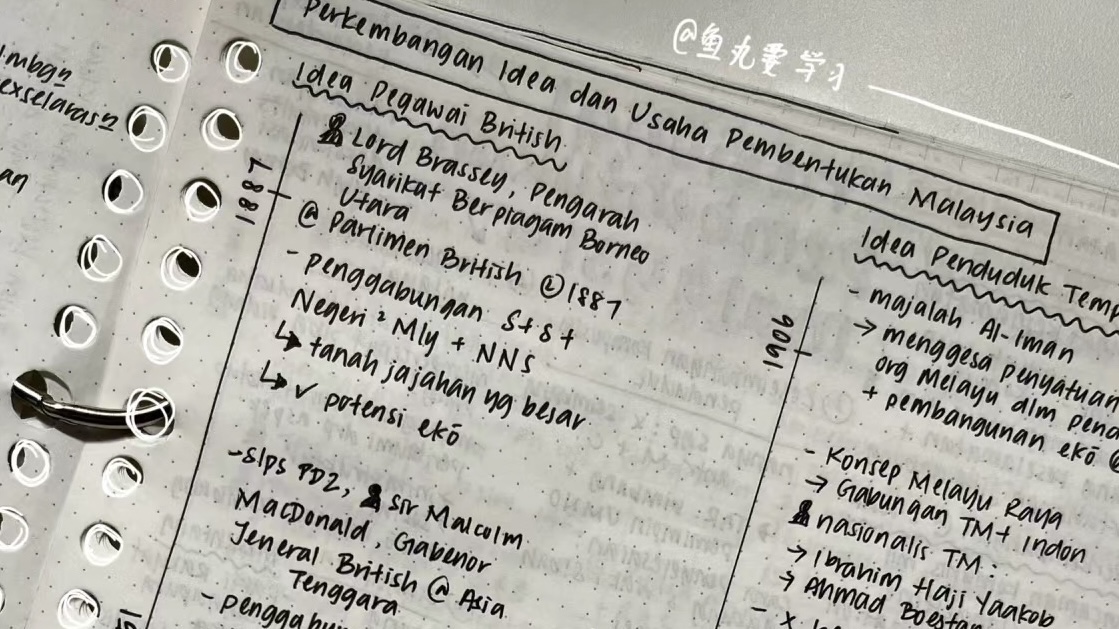 @鱼丸要学习
Perkembangan Idea dan Usaha Pembentukan Malaysia
Idea Pegawai British
1887
Lord Brassey, Pengarah
Syarikat Berpiagam Borneo
Utara
@ Parlimen British 1887
- penggabungan S+S+
Negeri² Mly + NNS
↳ tanah jajahan yg besar
↳ ✓ potensi ekō
- Slps PD2, Sir Malcolm
MacDonald, Gabenor
Jeneral British @ Asia
Tenggara
Idea Penduduk
1906
- majalah Al-Iman
→ menggesa penyatuan
org Melayu dlm
+ pembangunan ekō
- Konsep Melayu Raya
→ Gabungan TM+ Indon
nasionalis TM:
→ Ibrahim Haji Yaakob
→ Ahmad